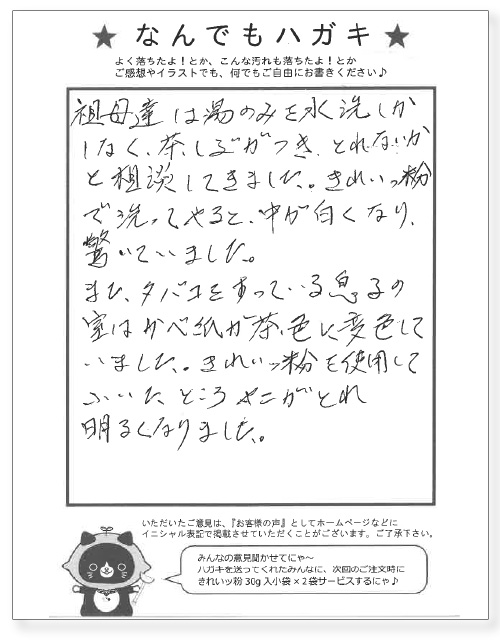 ★ なんでもハガキ ★
よく落ちたよ！とか、こんな汚れも落ちたよ！とか
ご感想やイラストでも、何でもご自由にお書きください♪
祖母達は湯のみを水洗しか
しなく、茶しぶがつき、とれないか
と相談してきました。きれいッ粉
で洗ってやると、中が白くなり、
驚いていました。
また、タバコをすっている息子の
室はかべ紙が茶色に変色して
いました。きれいッ粉を使用して
ふいたところヤニがとれ
明るくなりました。
いただいたご意見は、『お客様の声』としてホームページなどに
イニシャル表記で掲載させていただくことがございます。ご了承下さい。
みんなの意見聞かせてにゃ～
ハガキを送ってくれたみんなに、次回のご注文時に
きれいッ粉30g入小袋×2袋サービスするにゃ♪